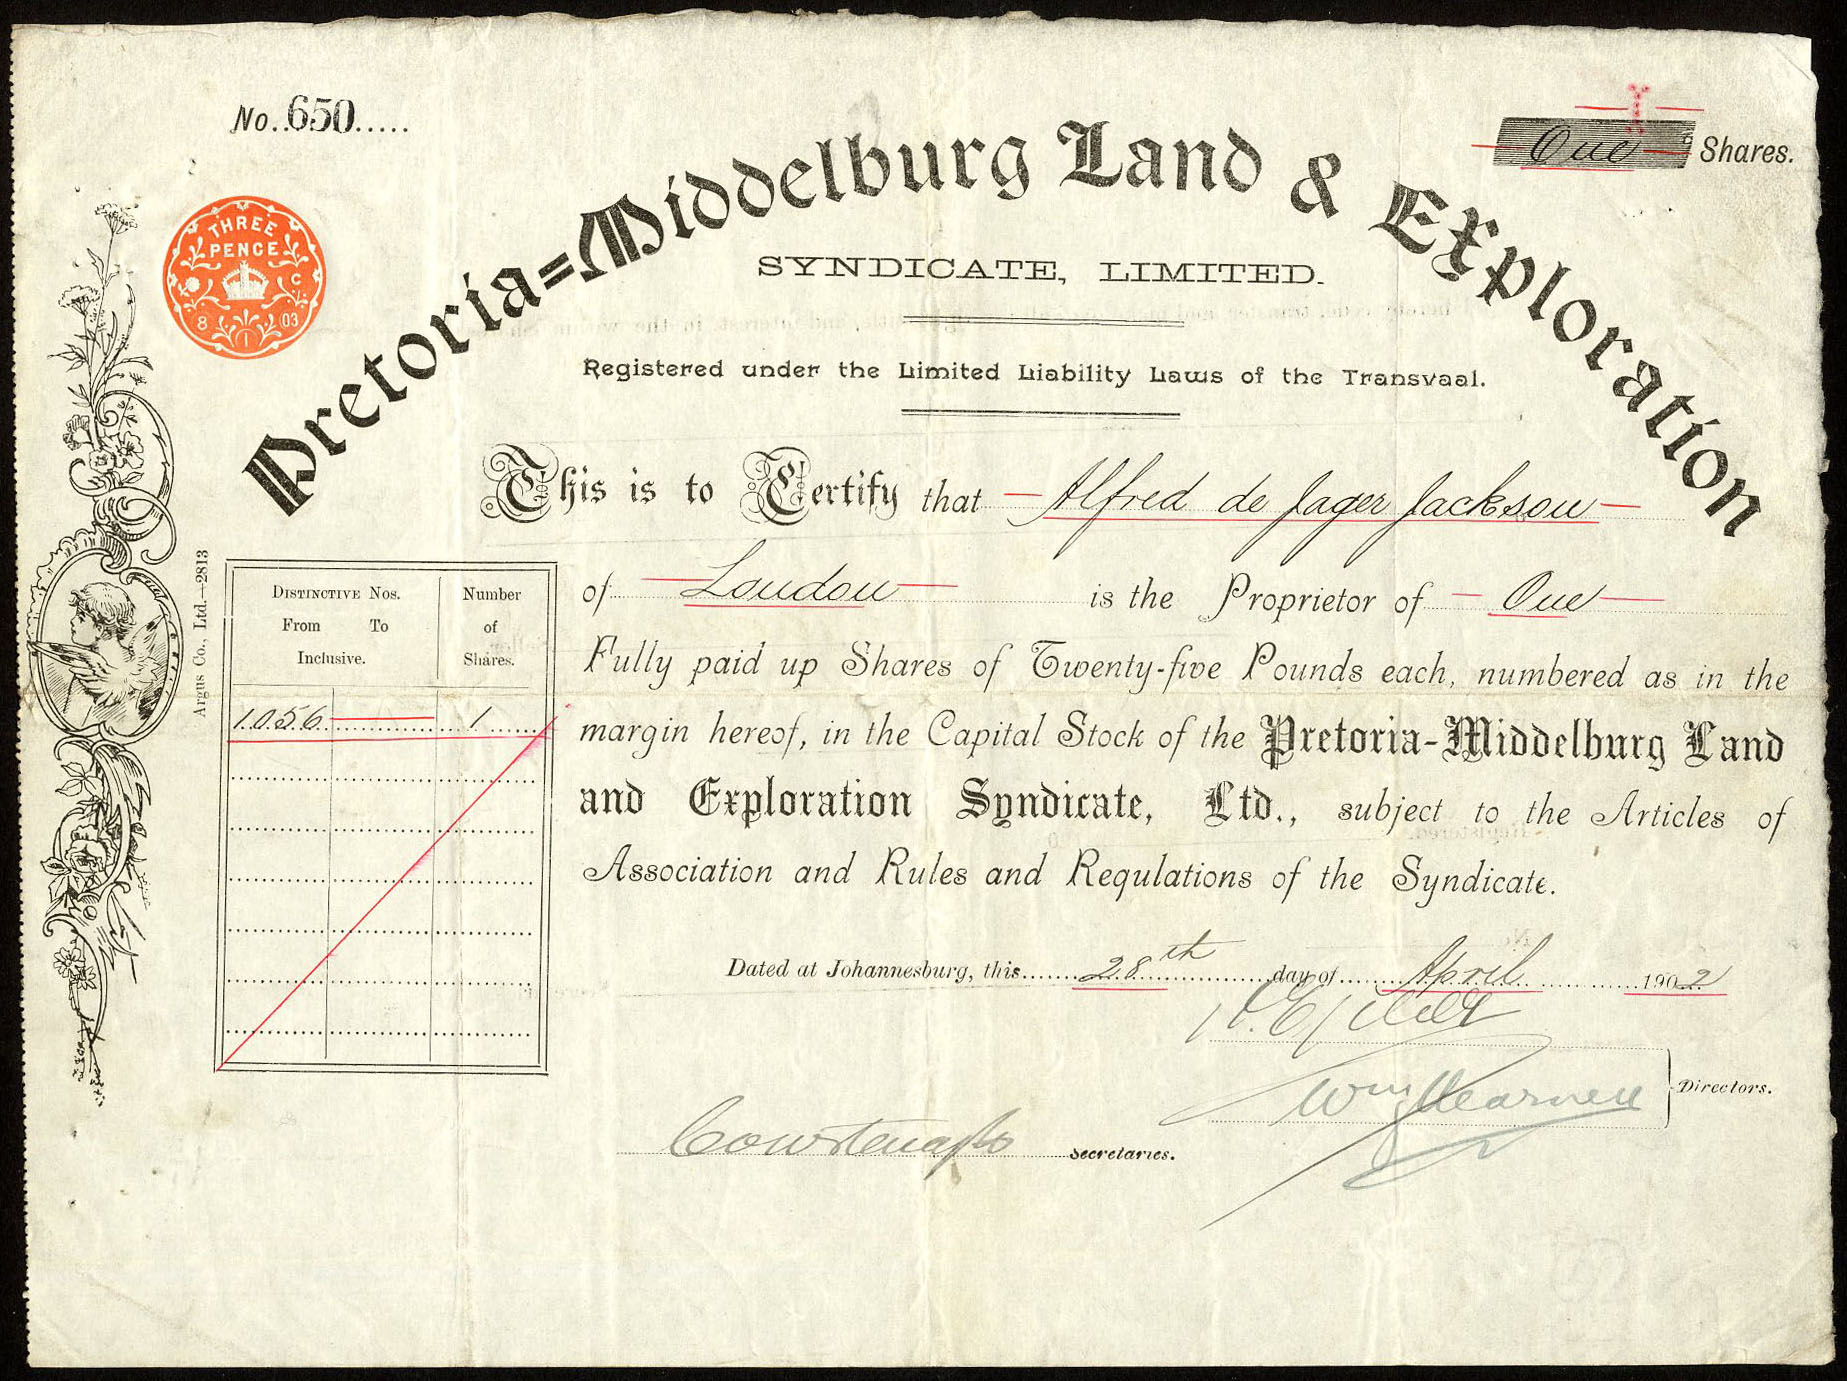 No. 650
One Shares.
THREE
PENCE
C
8 1 03
Pretoria=Middelburg Land & Exploration
SYNDICATE, LIMITED.
Registered under the Limited Liability Laws of the Transvaal.
This is to Certify that Alfred de Jager Jackson
of London is the Proprietor of One
Fully paid up Shares of Twenty-five Pounds each, numbered as in the
margin hereof, in the Capital Stock of the Pretoria-Middelburg Land
and Exploration Syndicate, Ltd., subject to the Articles of
Association and Rules and Regulations of the Syndicate.
Distinctive Nos.
From To
Inclusive.
Number
of
Shares.
1056 1
Argus Co., Ltd.—2813
Dated at Johannesburg, this 28th day of April 1902
Directors.
Secretaries.